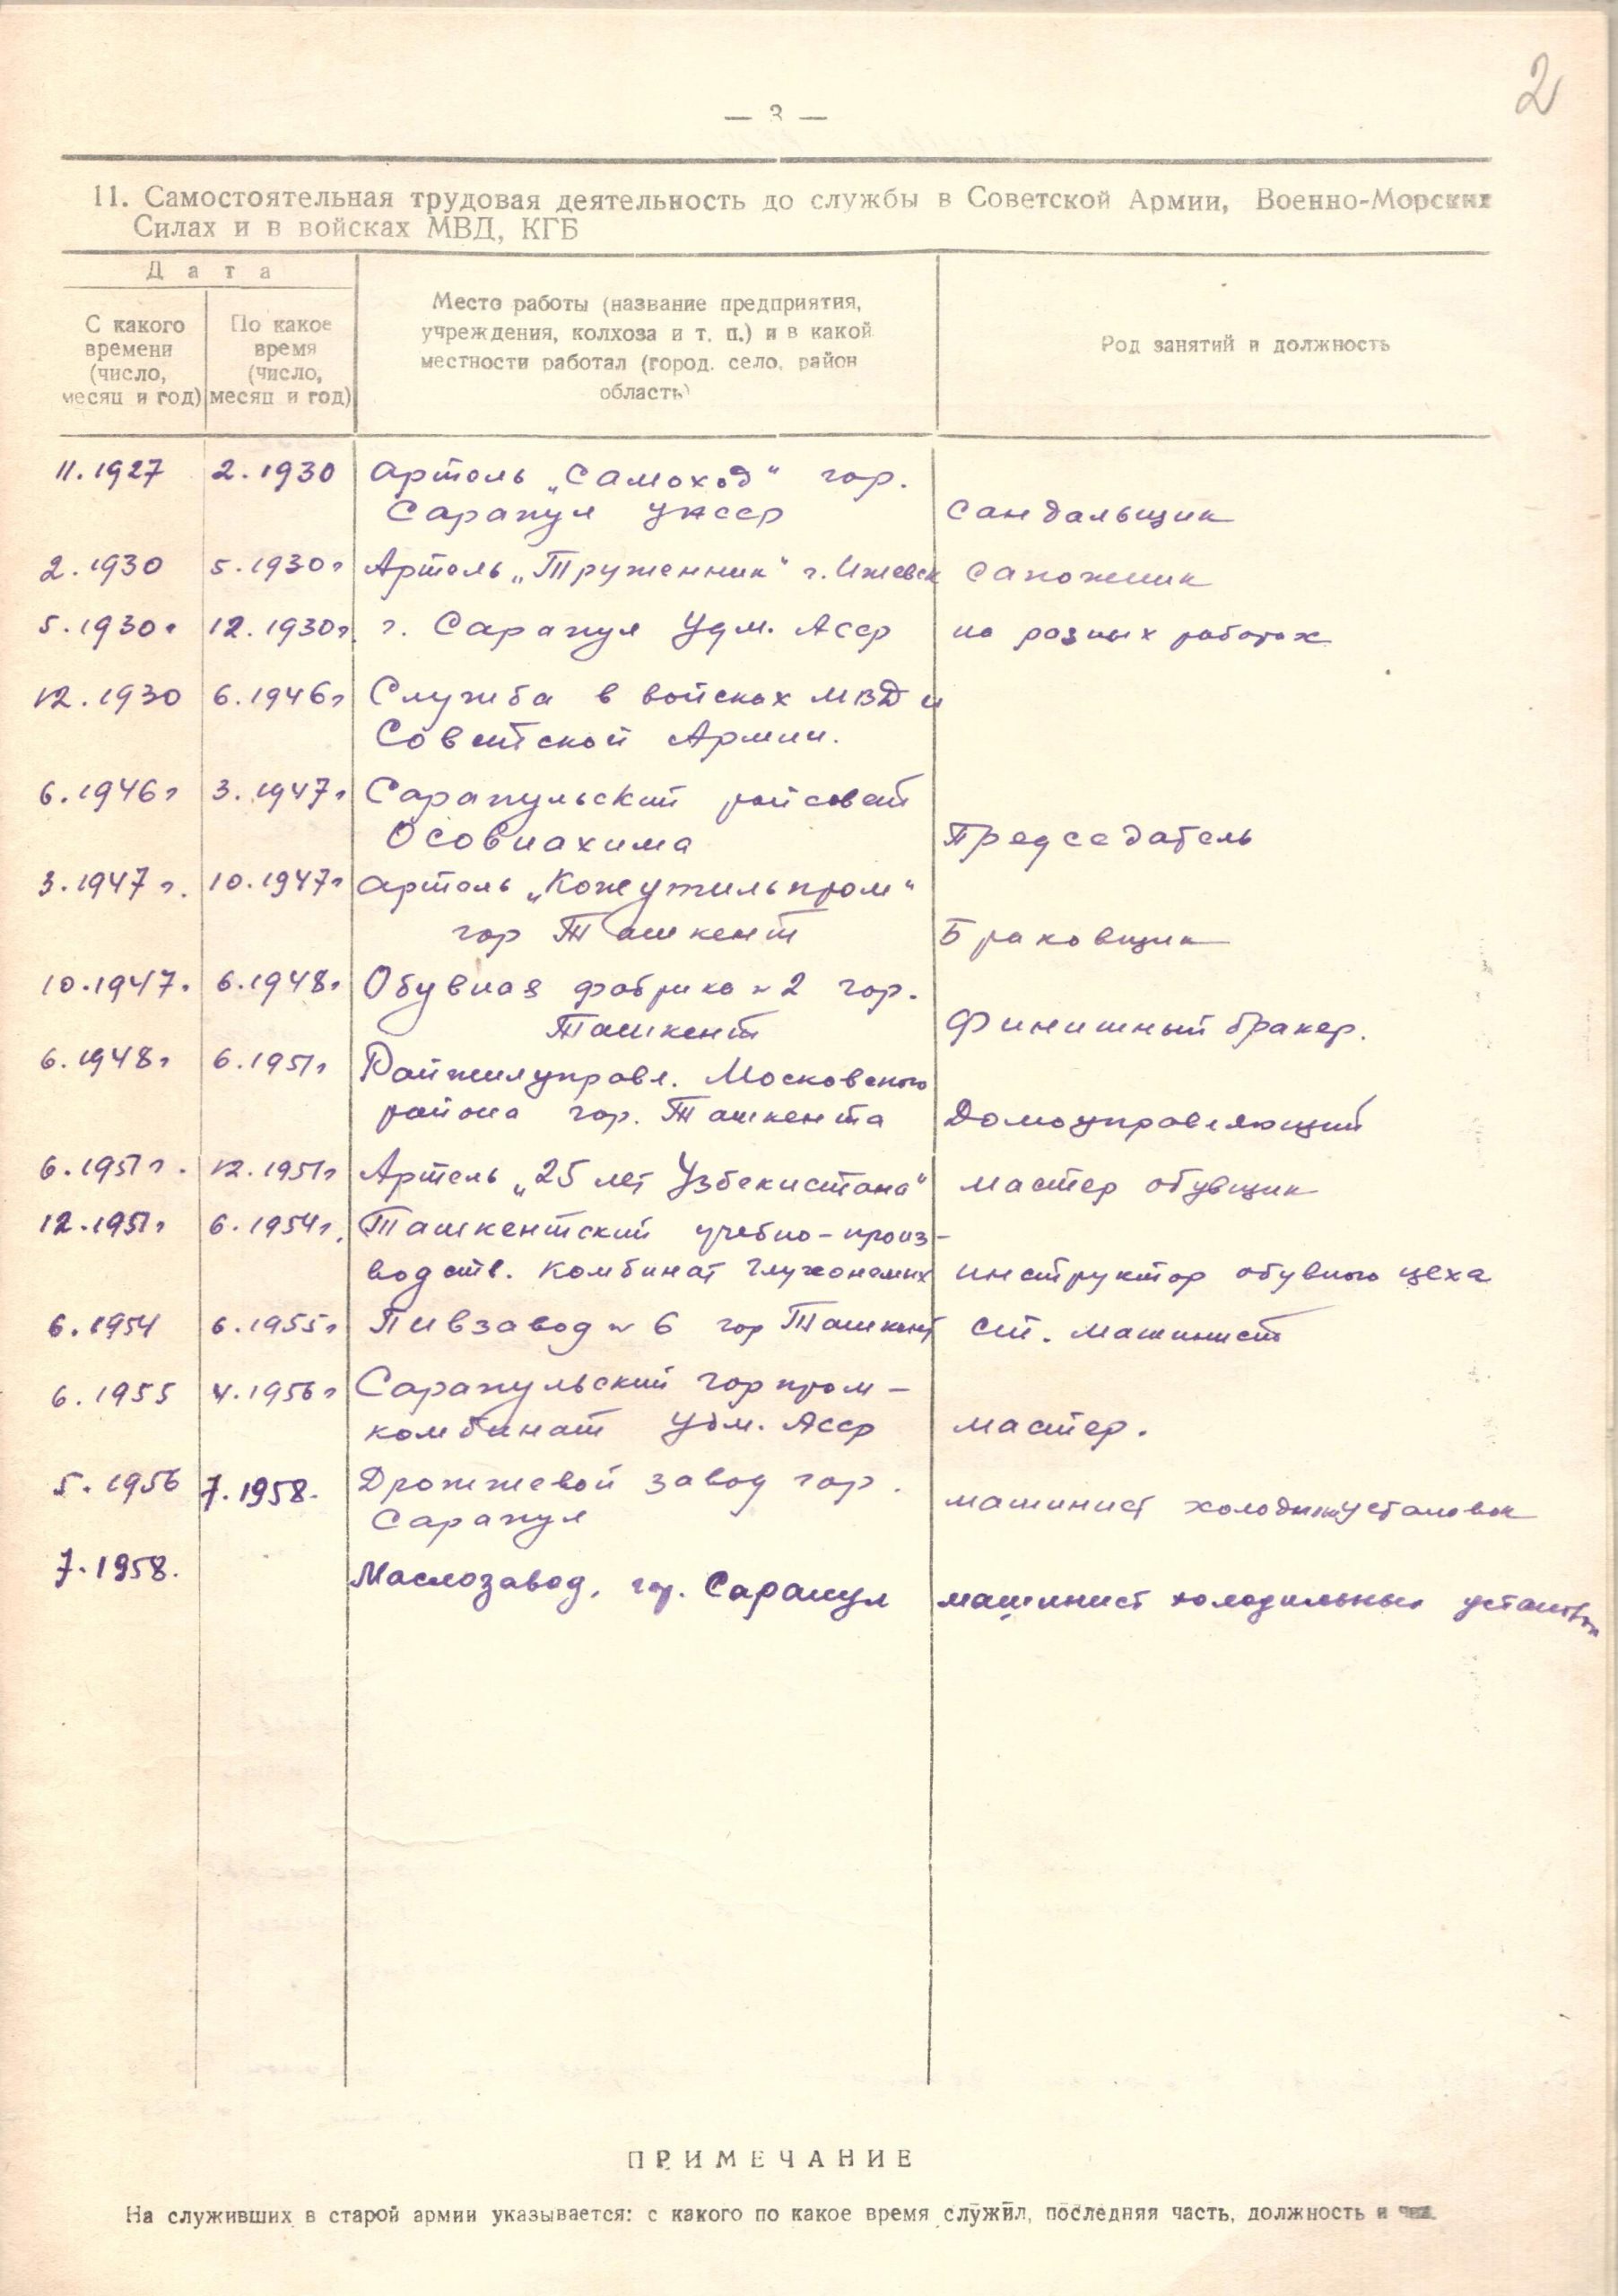 2
— 3 —
11. Самостоятельная трудовая деятельность до службы в Советской Армии, Военно-Морских
Силах и в войсках МВД, КГБ
Дата
С какого
времени
(число,
месяц и год)
По какое
время
(число,
месяц и год)
Место работы (название предприятия,
учреждения, колхоза и т. п.) и в какой
местности работал (город. село, район
область)
Род занятий и должность
11.1927 2.1930 артель „Самоход“ гор.
Сарапул УАССР Сандальщик
2.1930 5.1930г Артель „Труженник“ г. Ижевск Сапожник
5.1930г 12.1930г. г. Сарапул Удм. Асср на разных работах
12.1930 6.1946г Служба в войсках МВД и
Советской Армии.
6.1946г 3.1947г Сарапульский райсовет
Осовиахима Председатель
3.1947 г. 10.1947г артель „Кожутильпром“
гор Ташкент Браковщик
10.1947г 6.1948г Обувная фабрика №2 гор.
Ташкент Финишный бракер.
6.1948г 6.1951г Райжилуправл. Московского
района гор. Ташкента Домоуправляющий
6.1951г. 12.1951г Артель „25 лет Узбекистана“ мастер обувщик
12.1951г 6.1954г. Ташкентский учебно-произ-
водств. комбинат глухонемых инструктор обувного цеха
6.1954 6.1955г Пивзавод № 6 гор Ташкент ст. машинист
6.1955 4.1956г Сарапульский горпром-
комбинат Удм. Асср мастер.
5.1956 7.1958. Дрожжевой завод гор.
Сарапул машинист установок
7.1958. Маслозавод, гор. Сарапул машинист холодильных установок
ПРИМЕЧАНИЕ
На служивших в старой армии указывается: с какого по какое время служил, последняя часть, должность и чин.